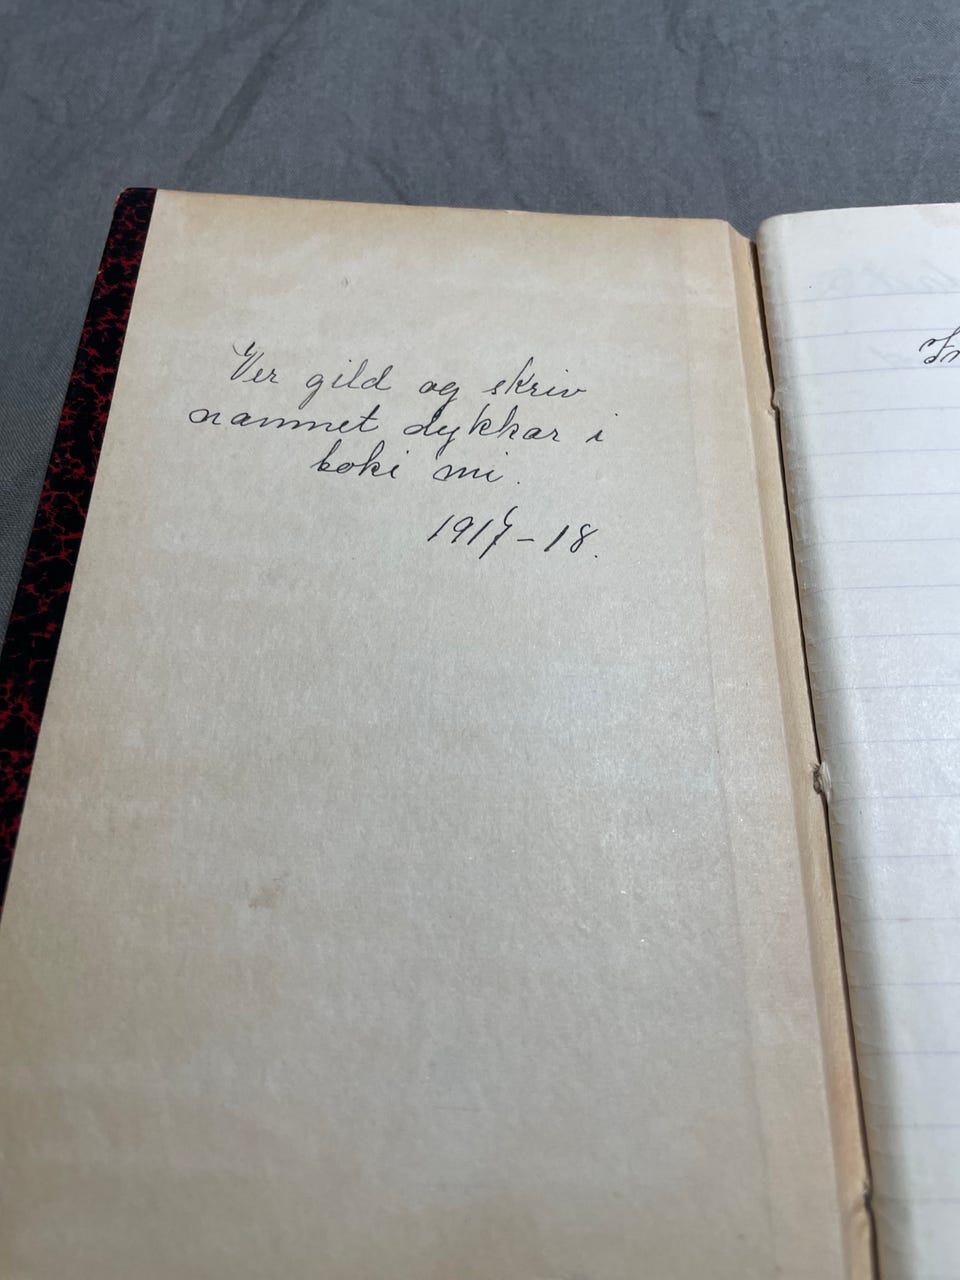 Ver gild og skriv
namnet dykkar i
boki mi.
1917–18.